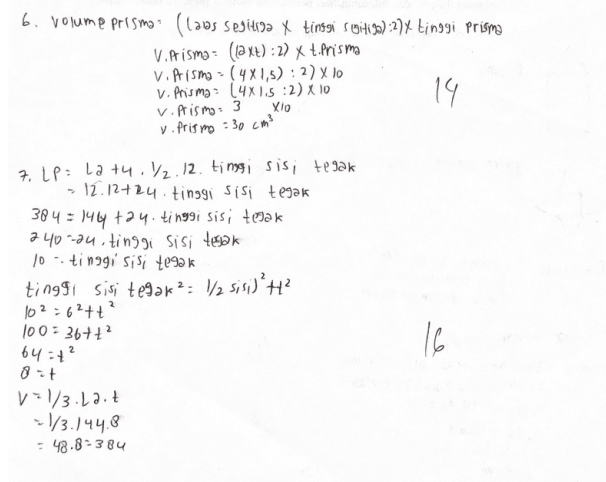 6. Volume prisma = ((alas segitiga x tinggi segitiga):2) x tinggi prisma
V. Prisma = ((axt) :2) x t.Prisma
V. Prisma = (4x1,5) : 2) x 10
V. Prisma = (4x1.5 :2) x 10
V. Prisma = 3 x10
V. Prisma = 30 cm³
14
7. LP = La + 4 . 1/2 . 12. tinggi sisi tegak
= 12.12 + 24 . tinggi sisi tegak
384 = 144 + 24 . tinggi sisi tegak
240 = 24 . tinggi sisi tegak
10 = . tinggi sisi tegak
tinggi sisi tegak² = 1/2 sisi)² + t²
10² = 6² + t²
100 = 36 + t²
64 = t²
8 = t
16
V = 1/3 . La . t
= 1/3 . 144 . 8
= 48 . 8 = 384